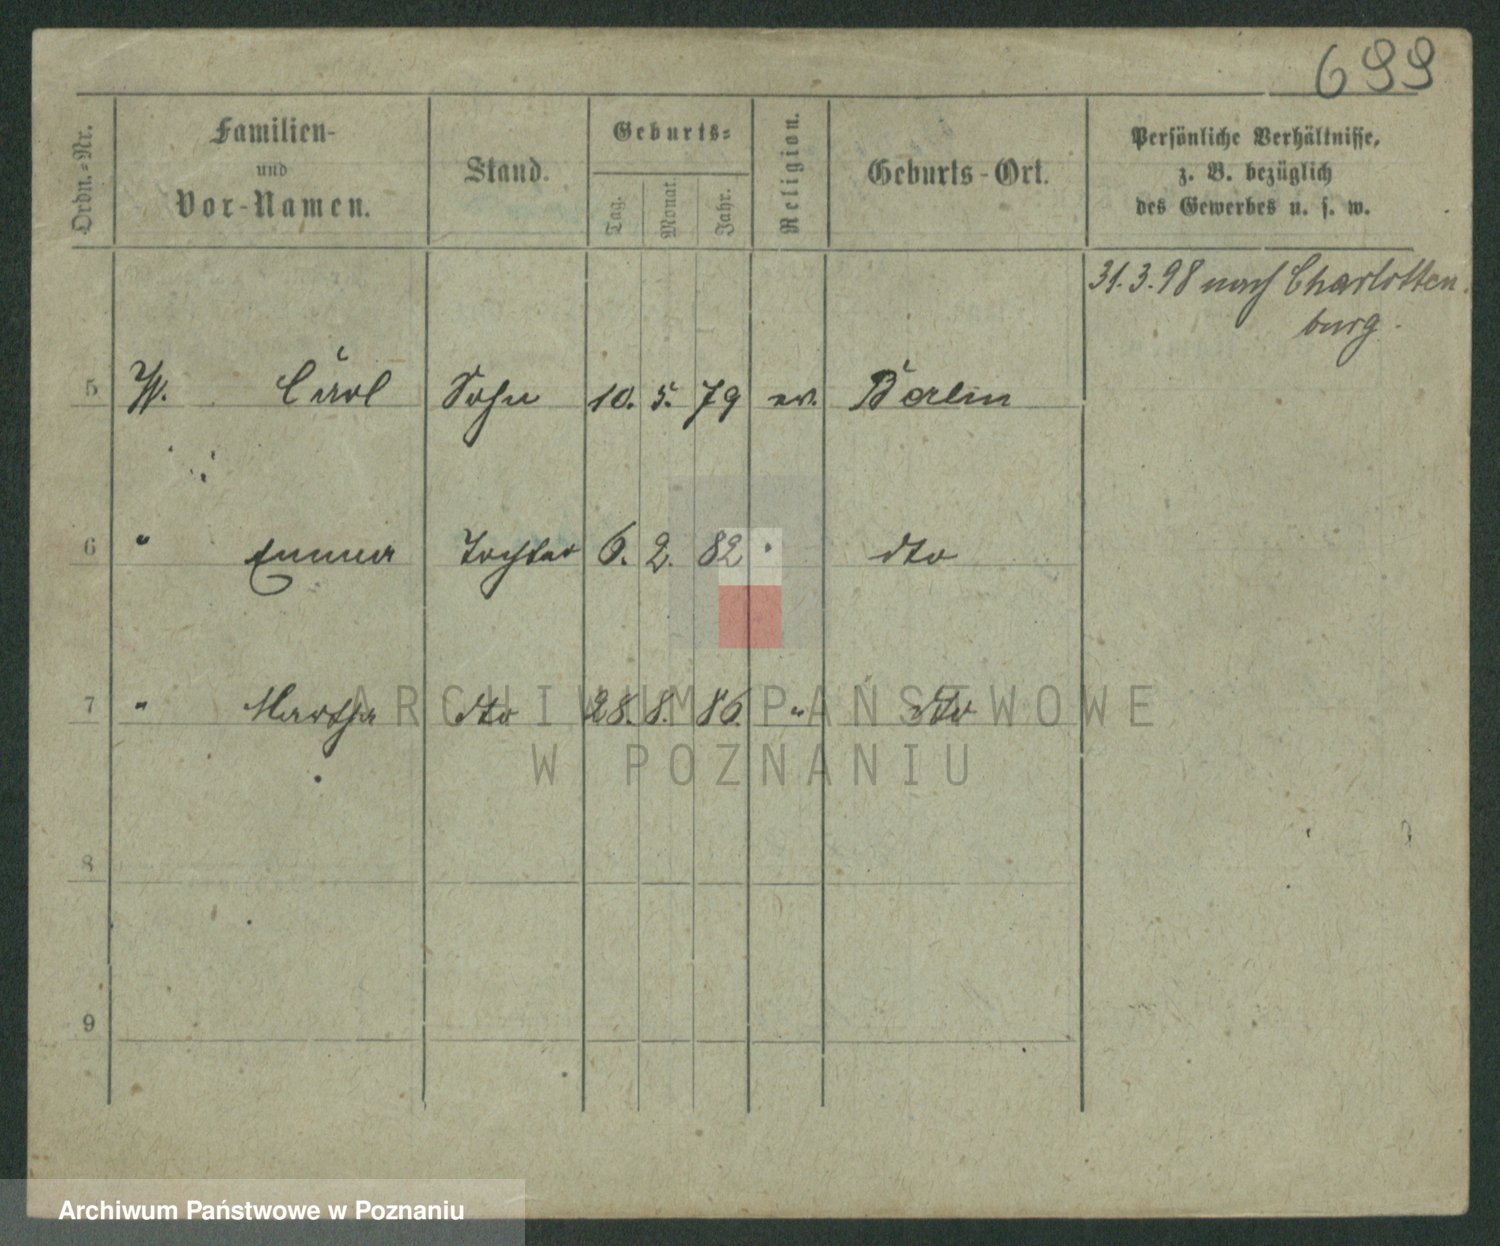 699
Ordn.-Nr.
Familien-
und
Vor-Namen.
Stand.
Geburts-
Tag.
Monat.
Jahr.
Religion.
Geburts-Ort.
Persönliche Verhältnisse,
z. B. bezüglich
des Gewerbes u. s. w.
31.3.98 nach Charlotten
burg.
5 W. Carl Sohn 10. 5. 79 ev. Berlin
6 " Emma Tochter 6. 2. 82 " dto
7 " Martha dto 28. 8. 86. " dto
8
9
ARCHIWUM PAŃSTWOWE
W POZNANIU
Archiwum Państwowe w Poznaniu